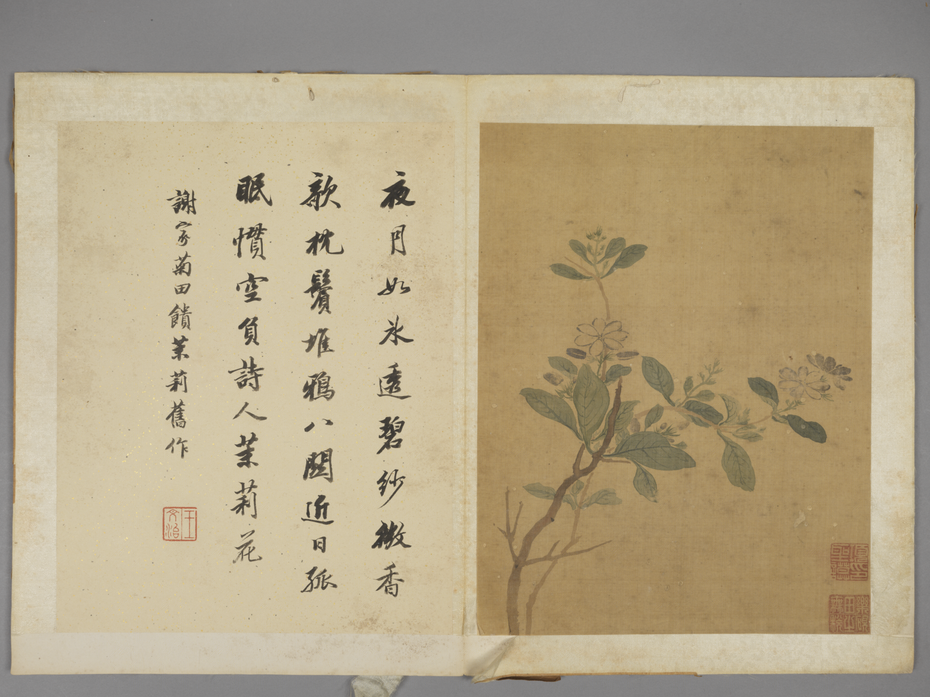 夜月如氷透碧紗微香
欹枕鬢堆鴉八關近日孤
眠慣空負詩人茉莉花
謝家菊田饋茉莉舊作
王文治